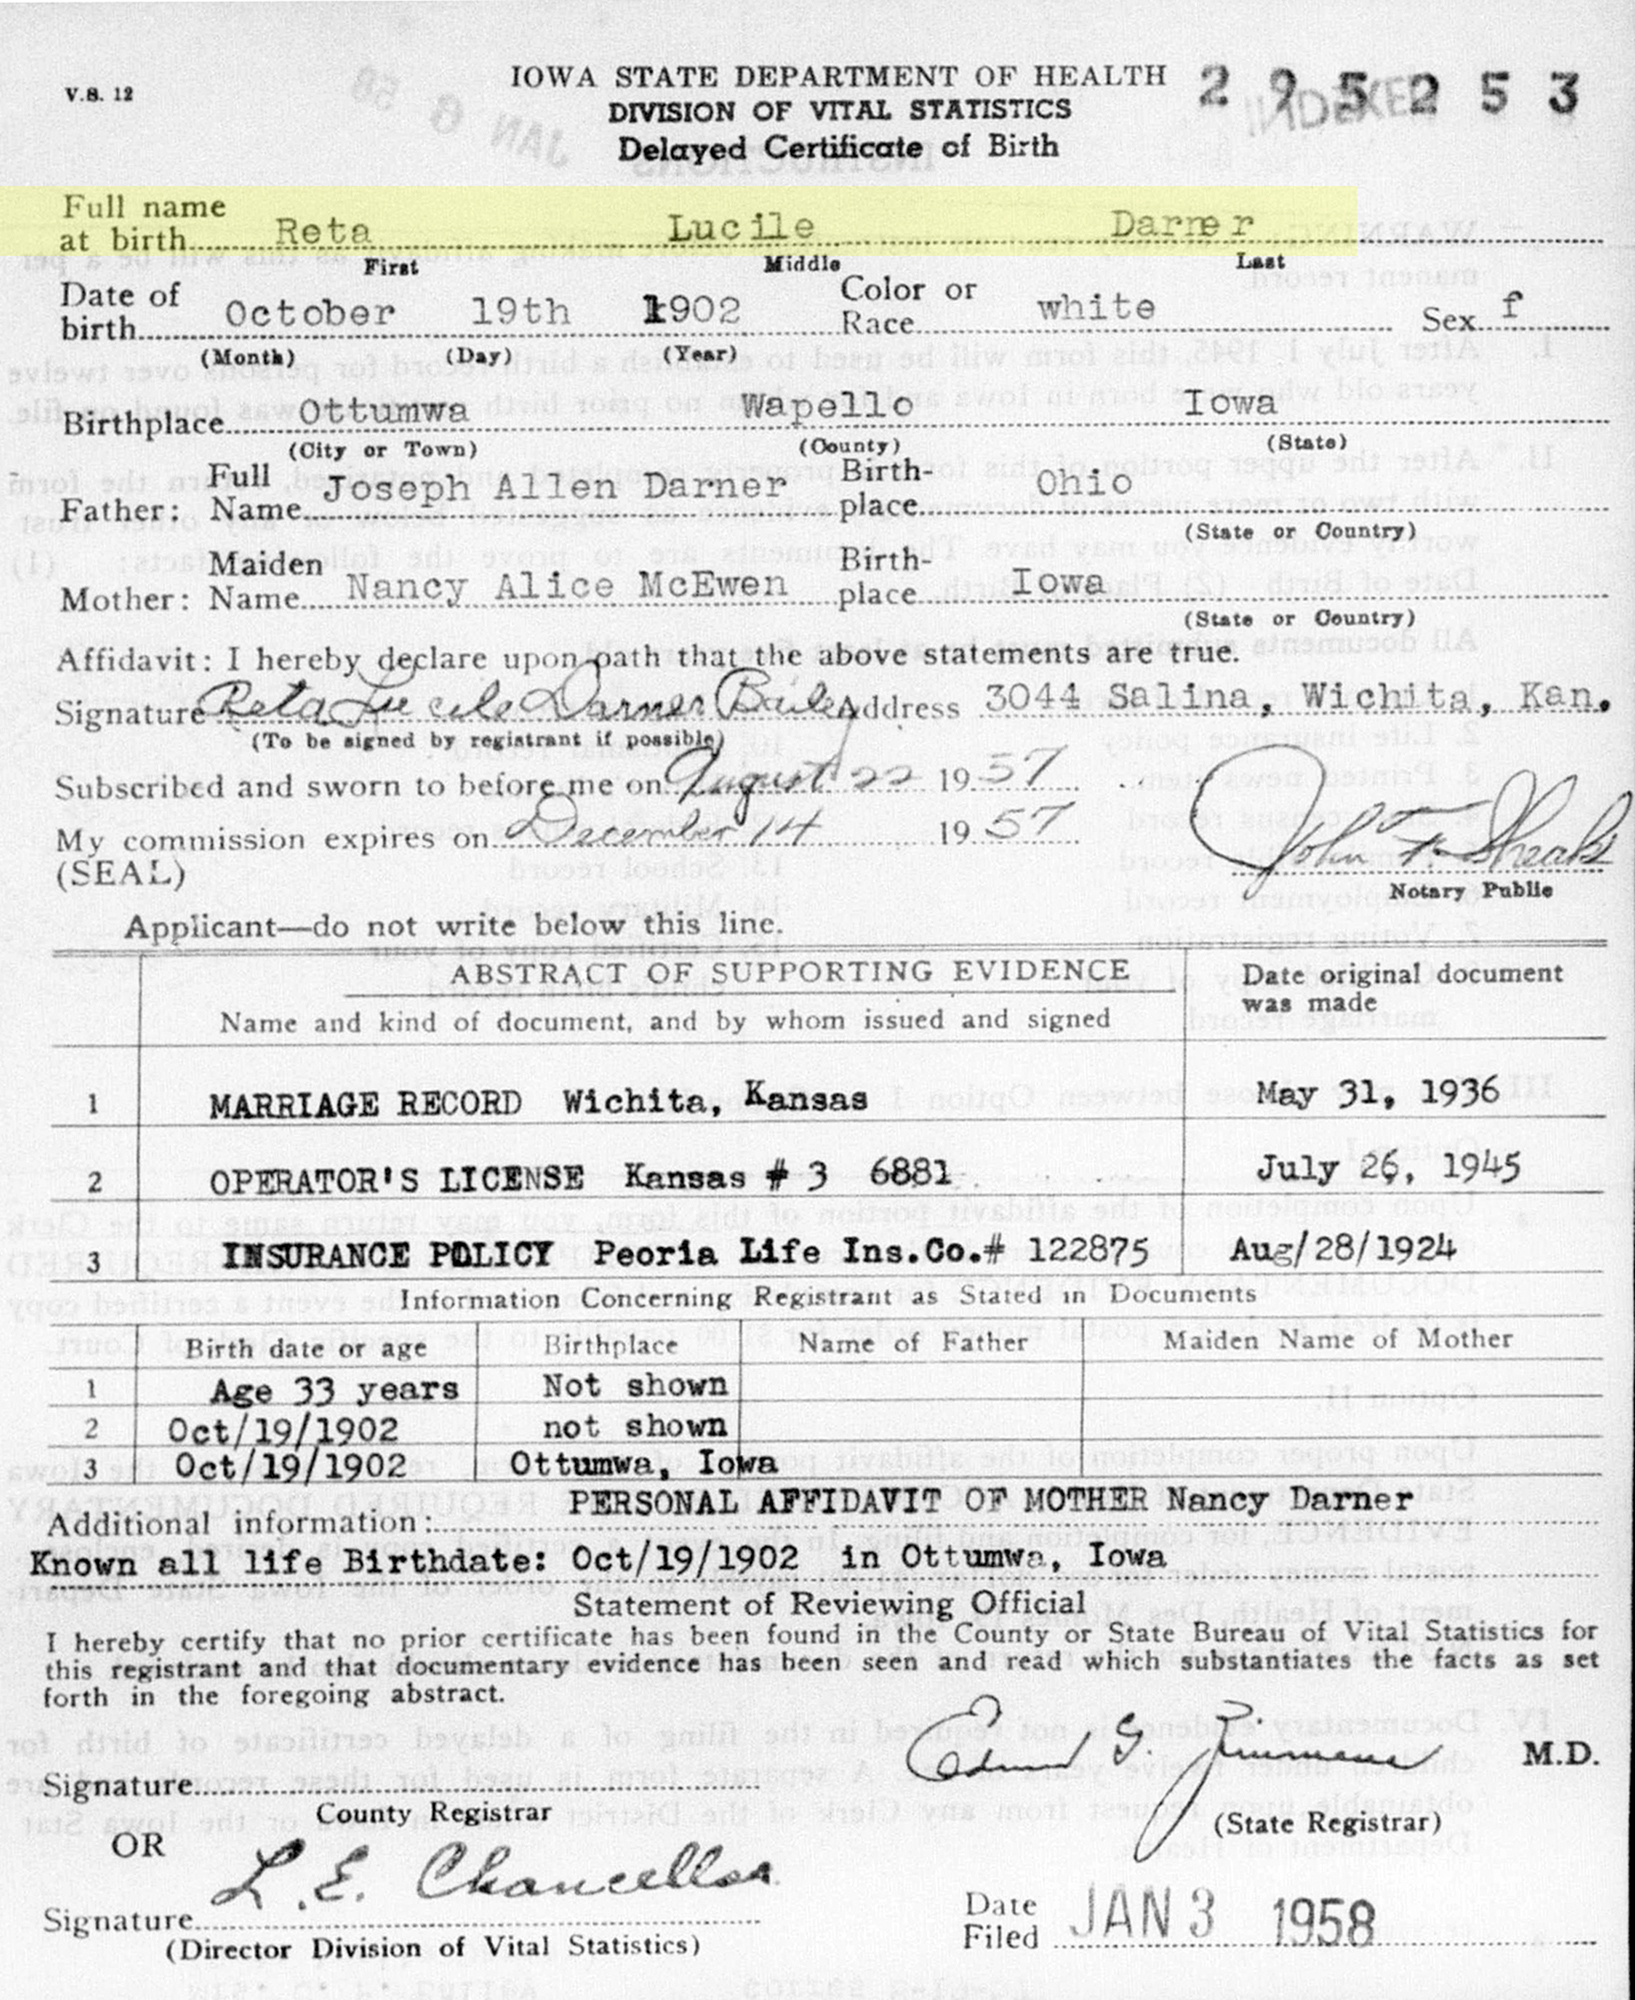 V.S. 12
IOWA STATE DEPARTMENT OF HEALTH 295253
DIVISION OF VITAL STATISTICS INDEXED
Delayed Certificate of Birth
JAN 6 58
INSTRUCTIONS
Full name
at birth Reta Lucile Darner
First Middle Last
Date of birth October 19th 1902 Color or Race white Sex f
(Month) (Day) (Year)
Birthplace Ottumwa Wapello Iowa
(City or Town) (County) (State)
Father: Full Name Joseph Allen Darner Birth-place Ohio
(State or Country)
Mother: Maiden Name Nancy Alice McEwen Birth-place Iowa
(State or Country)
Affidavit: I hereby declare upon oath that the above statements are true.
Signature Reta Lucile Darner Bailey Address 3044 Salina, Wichita, Kan.
(To be signed by registrant if possible)
Subscribed and sworn to before me on August 22 1957
My commission expires on December 14 1957
(SEAL) John F. Sheak
Notary Public
Applicant—do not write below this line.
ABSTRACT OF SUPPORTING EVIDENCE Date original document
Name and kind of document, and by whom issued and signed was made
1 MARRIAGE RECORD Wichita, Kansas May 31, 1936
2 OPERATOR'S LICENSE Kansas # 3 6881 July 26, 1945
3 INSURANCE POLICY Peoria Life Ins.Co.# 122875 Aug/28/1924
Information Concerning Registrant as Stated in Documents
Birth date or age Birthplace Name of Father Maiden Name of Mother
1 Age 33 years Not shown
2 Oct/19/1902 not shown
3 Oct/19/1902 Ottumwa, Iowa
Additional information: PERSONAL AFFIDAVIT OF MOTHER Nancy Darner
Known all life Birthdate: Oct/19/1902 in Ottumwa, Iowa
Statement of Reviewing Official
I hereby certify that no prior certificate has been found in the County or State Bureau of Vital Statistics for
this registrant and that documentary evidence has been seen and read which substantiates the facts as set
forth in the foregoing abstract.
Edmund G. Zimmerer M.D.
Signature
County Registrar (State Registrar)
OR
L. E. Chancellor
Signature
(Director Division of Vital Statistics)
Date Filed JAN 3 1958